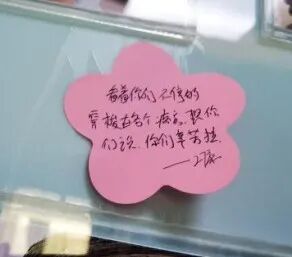 看着你们不停的
穿梭在各个病房,对你
们说,你们辛苦拉